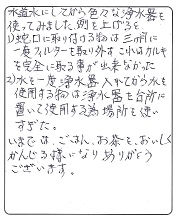 水道水にしてから色々な浄水器を
使ってみました。例を上げると
1)蛇口に取り付ける物は三ヶ月に
一度フィルターを取り外すこれはカルキ
を完全に取る事が出来なかった
2)水を一度浄水器入れてから水を
使用する物は浄水器を台所に
置いて使用する為場所を使い
すぎた。
いまでは、ごはん、お茶を、おいしく
かんじる様になりありがとう
ございます。